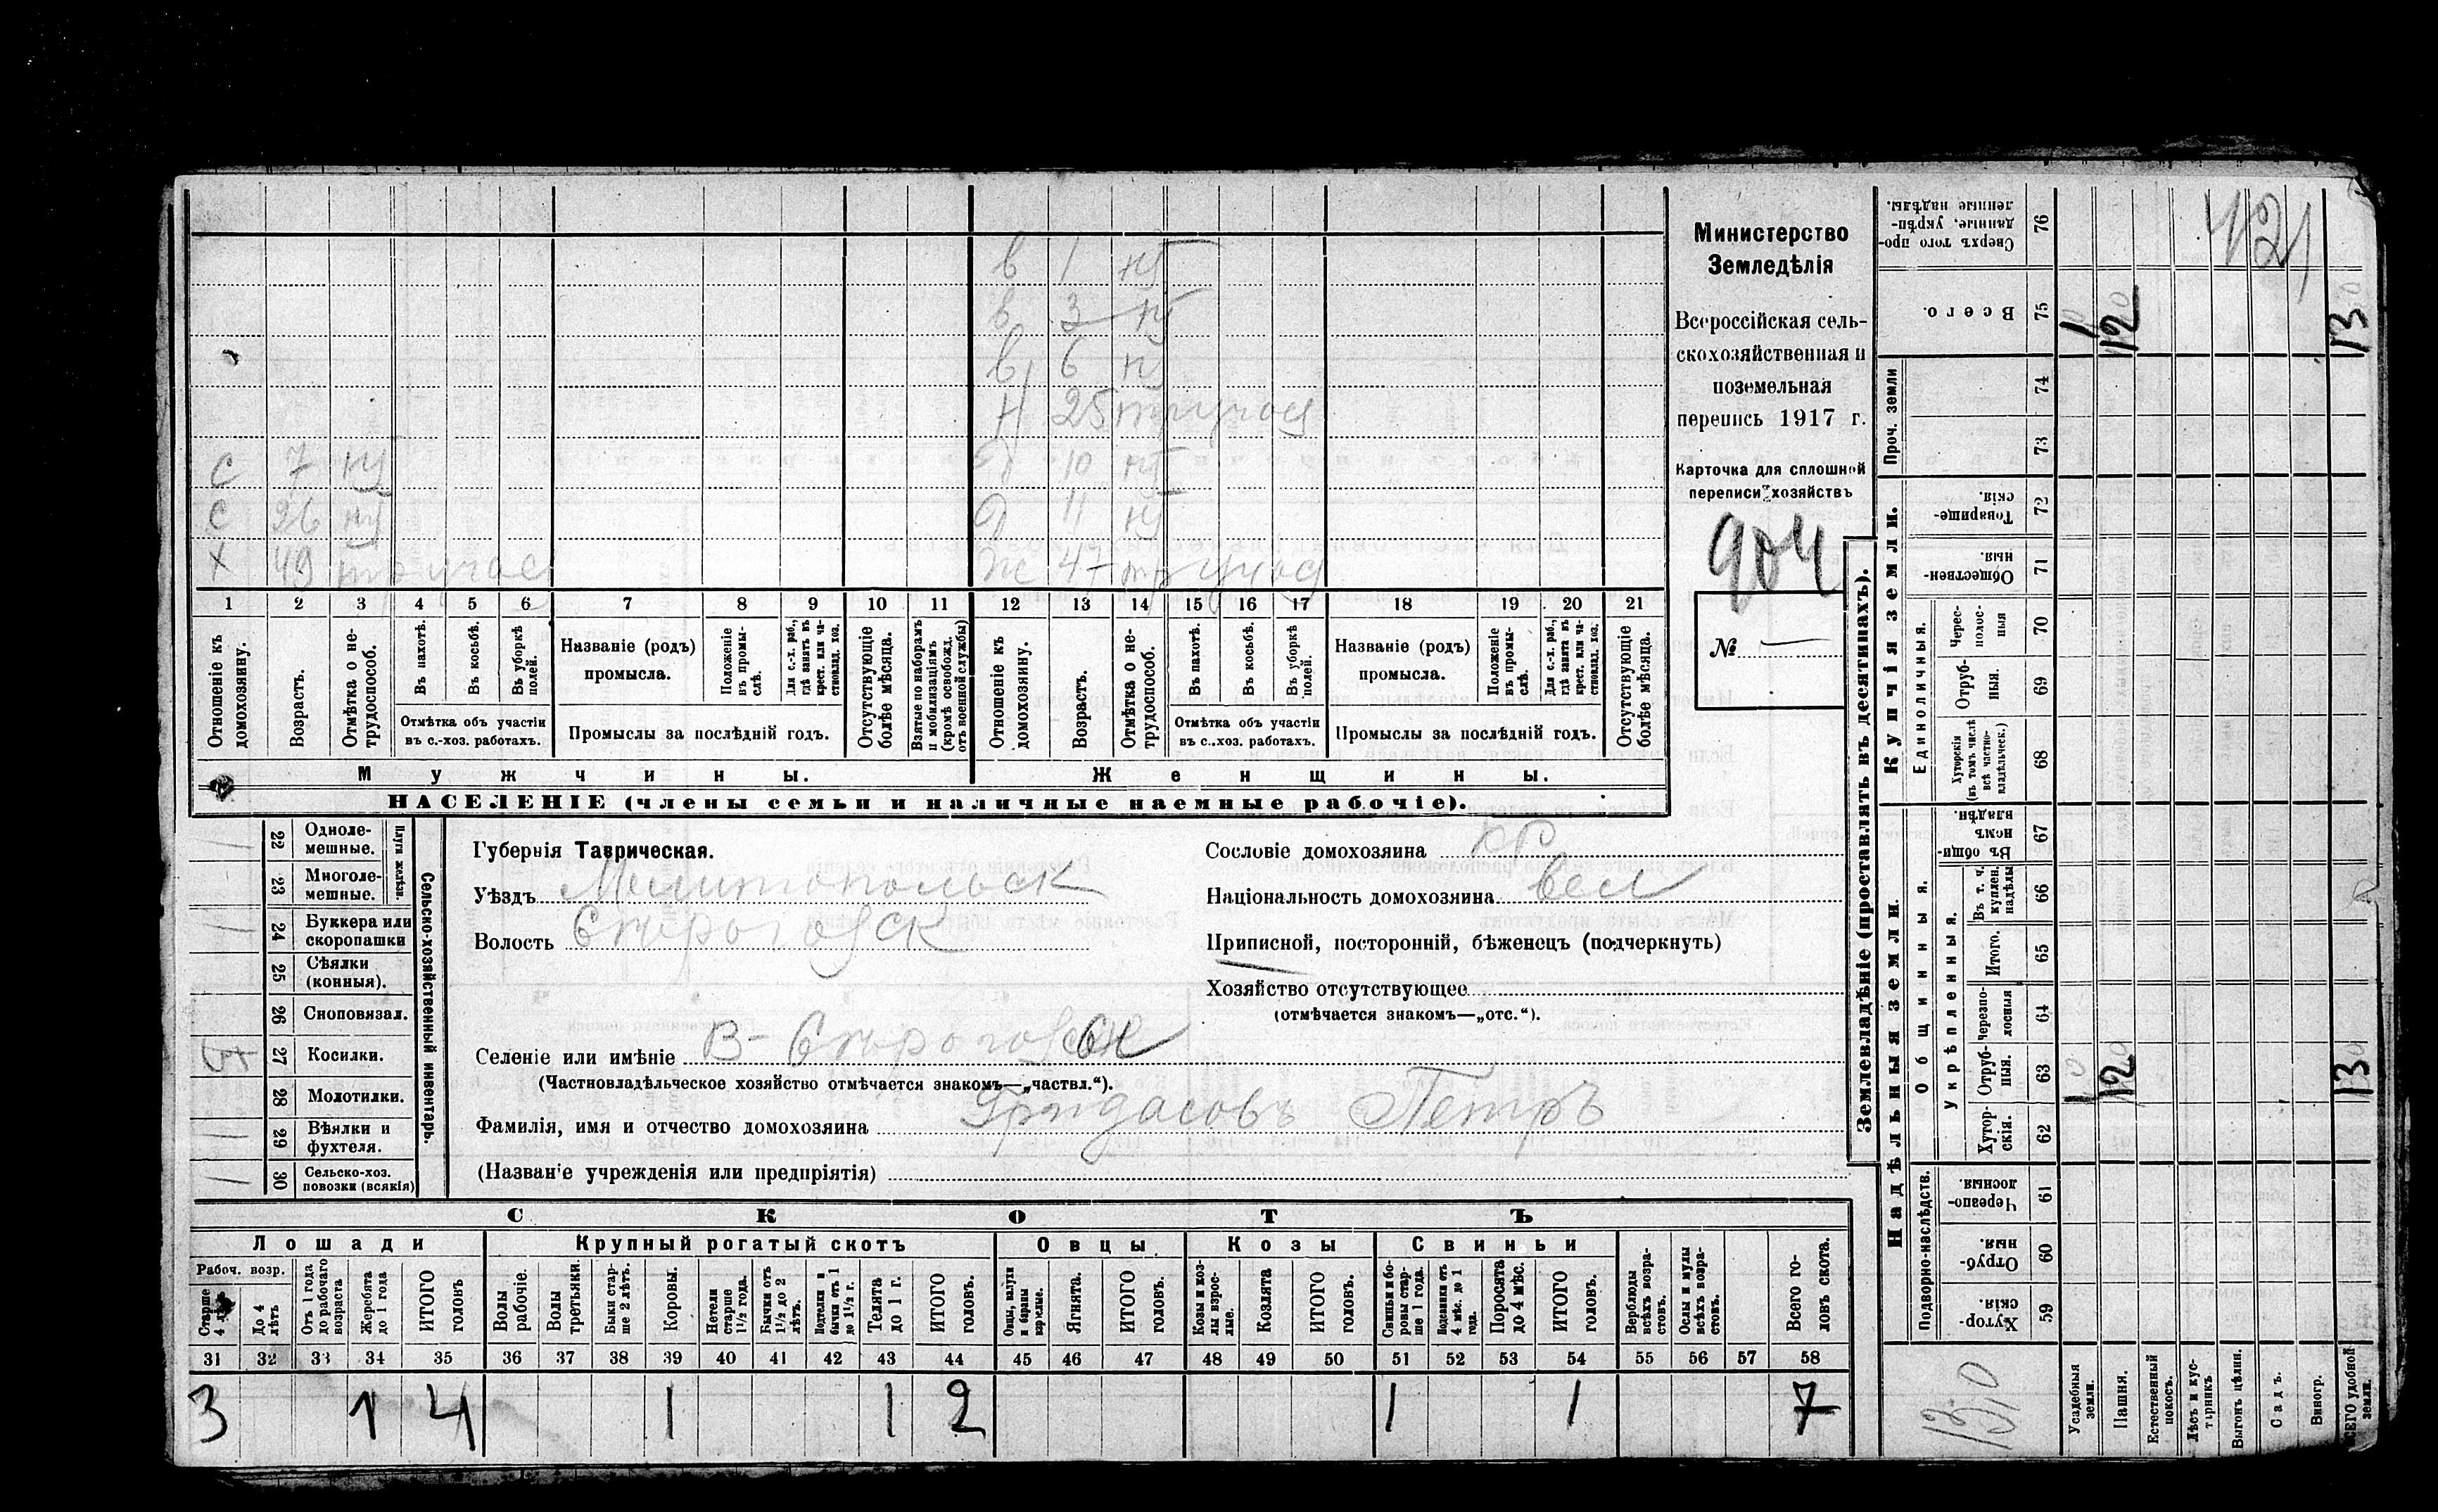 в 1 нт
в 3 нт
в 6 нт
Н 25
С 7 нт 10 нт
С 26 нт д 11 нт
Х 49 ж 47
1 2 3 4 5 6 7 8 9 10 11 12 13 14 15 16 17 18 19 20 21
Отношеніе къ домохозяину.
Возрастъ.
Отмѣтка о не-трудоспособ.
Въ пахотѣ.
Въ косьбѣ.
Въ уборкѣ полей.
Отмѣтка объ участіи
въ с.-хоз. работахъ.
Названіе (родъ)
промысла.
Положеніе въ промы-слѣ.
Для с.-х. раб., гдѣ занятъ въ крест. или ча-стновлад. хоз.
Промыслы за послѣдній годъ.
Отсутствующіе болѣе мѣсяца.
Взятые по наборамъ и мобилизаціямъ (кромѣ освобожд. отъ военной службы)
Отношеніе къ домохозяину.
Возрастъ.
Отмѣтка о не-трудоспособ.
Въ пахотѣ.
Въ косьбѣ.
Въ уборкѣ полей.
Отмѣтка объ участіи
въ с.-хоз. работахъ.
Названіе (родъ)
промысла.
Положеніе въ промы-слѣ.
Для с.-х. раб., гдѣ занята въ крест. или ча-стновлад. хоз.
Промыслы за послѣдній годъ.
Отсутствующіе болѣе мѣсяца.
Мужчины.
Женщины.
НАСЕЛЕНІЕ (члены семьи и наличные наемные рабочіе).
Министерство
Земледѣлія
Всероссійская сель-
скохозяйственная и
поземельная
перепись 1917 г.
Карточка для сплошной
переписи хозяйствъ
904
№ —
22 Одноле-мешные.
23 Многоле-мешные.
Плуги желѣзн.
24 Буккера или скоропашки
25 Сѣялки (конныя).
26 Сноповязал.
27 Косилки.
28 Молотилки.
29 Вѣялки и фухтеля.
30 Сельско-хоз. повозки (всякія)
Сельско-хозяйственный инвентарь.
Губернія Таврическая.
Уѣздъ Мелитопольск
Волость
Сословіе домохозяина кр
Національность домохозяина вел
Приписной, посторонній, бѣженецъ (подчеркнуть)
Хозяйство отсутствующее
(отмѣчается знакомъ—„отс.“).
Селеніе или имѣніе
(Частновладѣльческое хозяйство отмѣчается знакомъ—„частвл.“).
Фамилія, имя и отчество домохозяина Гридасовъ Петръ
(Названіе учрежденія или предпріятія)
СКОТЪ
Лошади
Крупный рогатый скотъ
Овцы
Козы
Свиньи
Рабоч. возр.
Старше 4 лѣтъ
До 4 лѣтъ
Отъ 1 года до рабочаго возраста
Жеребята до 1 года
ИТОГО головъ
Волы рабочіе.
Волы третьяки.
Быки стар-ше 2 лѣтъ.
Коровы.
Нетели старше 1½ года.
Бычки отъ 1½ до 2 лѣтъ.
Подтелки и бычки отъ 1 до 1½ г.
Телята до 1 г.
ИТОГО головъ.
Овцы, валухи и бараны взрослые.
Ягнята.
ИТОГО головъ.
Козы и коз-лы взрос-лые.
Козлята
ИТОГО головъ.
Свиньи и бо-ровы стар-ше 1 года.
Подсвинки отъ 4 мѣс. до 1 года.
Поросята до 4 мѣс.
ИТОГО головъ.
Верблюды всѣхъ возра-стовъ.
Ослы и мулы всѣхъ возра-стовъ.
Всего го-ловъ скота.
31 32 33 34 35 36 37 38 39 40 41 42 43 44 45 46 47 48 49 50 51 52 53 54 55 56 57 58
3 1 4 1 1 2 1 1 7
Землевладѣніе (проставлять въ десятинахъ).
Надѣльныя земли.
Купчія земли.
Проч. земли
Подворно-наслѣдств.
Общинныя.
Укрѣпленныя.
Единоличныя.
Хутор-скія. 59
Отруб-ныя. 60
Черезпо-лосныя. 61
Хутор-скія. 62
Отруб-ныя. 63
Черезпо-лосныя 64
Итого. 65
Въ т. ч. куплен. надѣлы 66
Въ общин-номъ владѣн. 67
Хуторскія (въ томъ числѣ всѣ частно-владѣльческ.) 68
Отруб-ныя. 69
Черес-полос-ныя 70
Обществен-ныя. 71
Товарище-скія. 72
73
74
Всего. 75
Сверхъ того про-данные, укрѣп-ленные надѣлы. 76
Усадебныя земли.
Пашня.
Естественный покосъ.
Лѣсъ и кус-тарникъ
Выгонъ цѣлин.
Садъ.
Виногр.
ВСЕГО удобной земли.
10 120 130
10 120 130
130
421